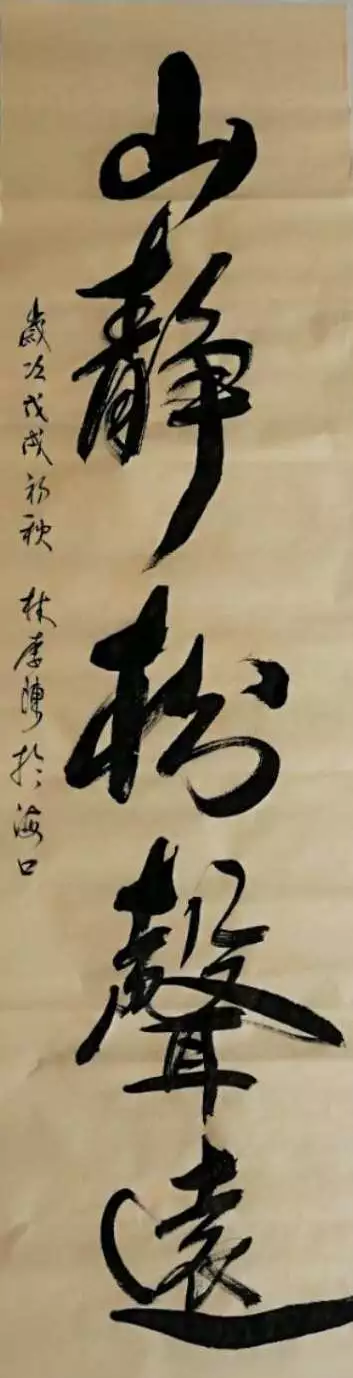 山靜松聲遠
歲次戊戌初秋 林李陳於海口